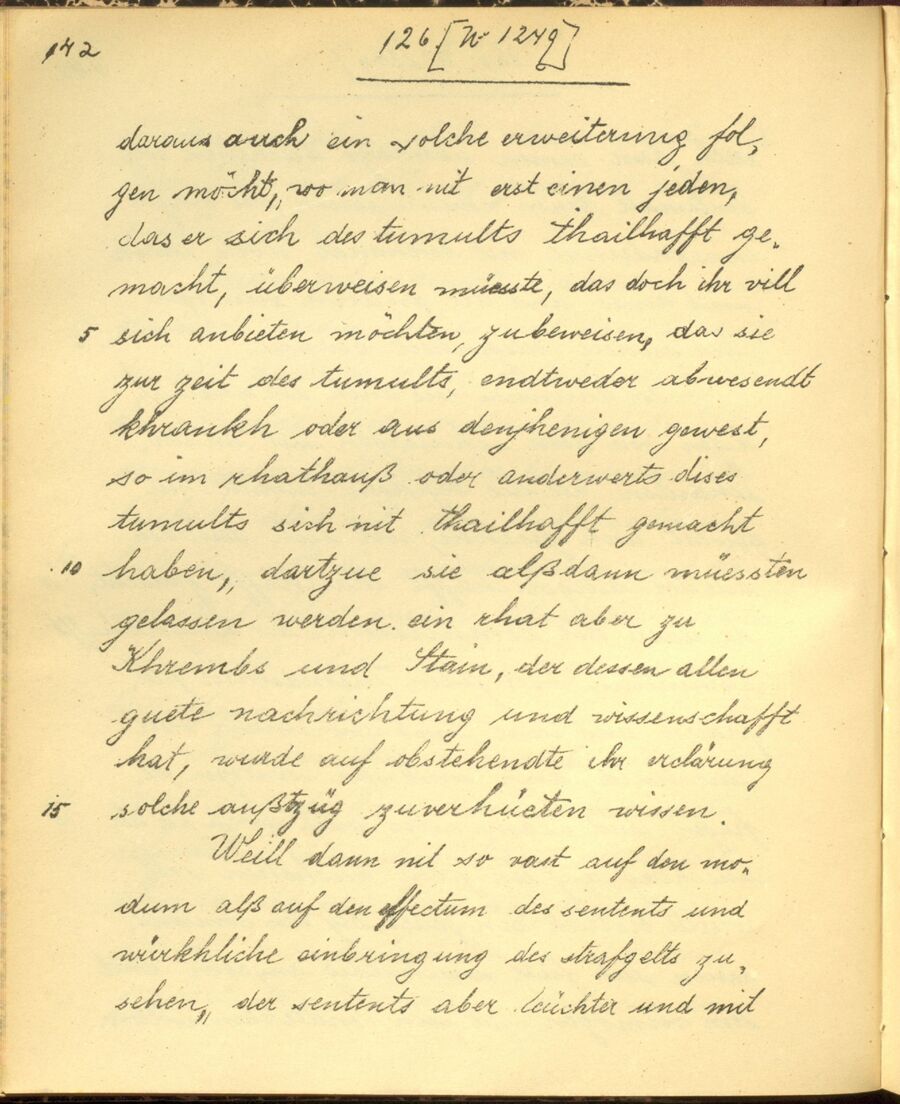 142
126 [N 1249]
daraus auch ein solche erweiterung fol,
gen möcht, wo man nit erst einen jeden,
das er sich des tumults thailhafft ge,
macht, überweisen müesste, das doch ihr vill
5 sich anbieten möchten, zubeweisen, das sie
zur zeit des tumults, endtweder abwesendt
khrankh oder aus denjhenigen gewest,
so im rhathauß oder anderwerts dises
tumults sich nit thailhafft gemacht
10 haben, dartzue sie alßdann müessten
gelassen werden. ein rhat aber zu
Khrembs und Stain, der dessen allen
guete nachrichtung und wissenschafft
hat, wurde auf obstehendte ihr erclärung
15 solche außtzüg zuverhüeten wissen.
Weill dann nit so vast auf den mo,
dum alß auf den effectum des sentents und
würkhliche einbringung des strafgelts zu,
sehen, der sentents aber leüchter und mit